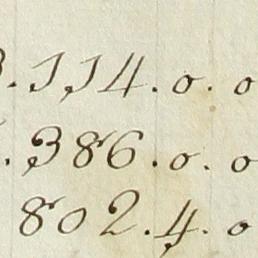 3.114.0.0
.386.0.0
802.4.0